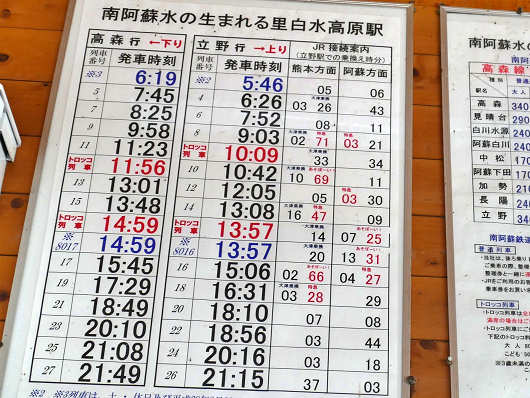 南阿蘇水の生まれる里白水高原駅
高森行 ←下り 立野行 →上り JR接続案内
(立野駅での乗換え時分)
列車番号 発車時刻 列車番号 発車時刻 熊本方面 阿蘇方面
※3 6:19 ※2 5:46 05 06
5 7:45 4 6:26 03 26 43
7 8:25 6 7:52 08 11
9 9:58 8 9:03 02 71 03 21
11 11:23 トロッコ列車 10:09 33 34
トロッコ列車 11:56 10 10:42 10 69 11
13 13:01 12 12:05 05 03 30
15 13:48 14 13:08 16 47 09
トロッコ列車 14:59 トロッコ列車 13:57 14 07 25
※8017 14:59 ※8016 13:57 20 13 31
17 15:45 16 15:06 02 66 04 27
19 17:29 18 16:31 03 28 29
21 18:49 20 17:35 07 08
23 20:10 22 18:56 03 44
25 21:08 24 20:16 03 18
27 21:49 26 21:15 37 03
南阿蘇水の
高森線
駅名
高森 340
見晴台 290
白川水源
阿蘇白川 240
中松 170
阿蘇下田 170
加勢 210
長陽 240
立野 340
南阿蘇鉄道
普通列車
トロッコ列車